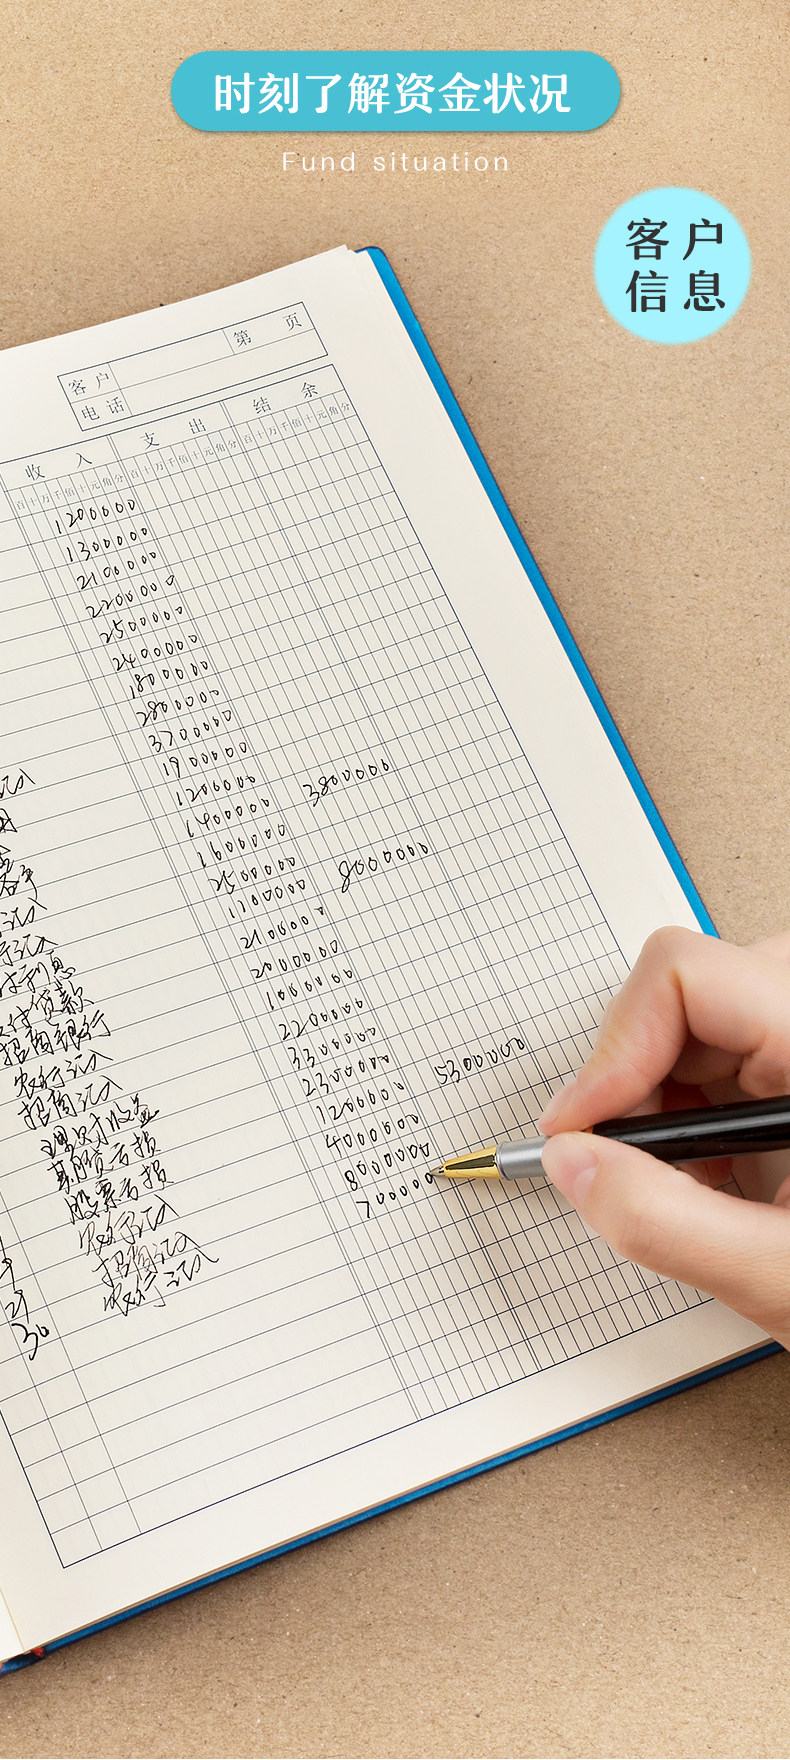 时刻了解资金状况
Fund situation
客户
信息
第 页
客户
电话
收入 支出 结余
百十万千佰十元角分 百十万千佰十元角分 百十万千佰十元角分
1200000
1300000
2100000
2200000
2500000
2400000
1800000
2800000
3700000
1900000
1200000 3800000
1400000
1600000
2500000 8000000
1100000
2100000
2000000
1000000
2200000
3300000
2300000
1200000 5300000
4000000
8000000
700000
付利息
付贷款
招商银行
农行汇入
招商汇入
理财收益
基金亏损
股票亏损
农行汇入
招商汇入
农行汇入
30